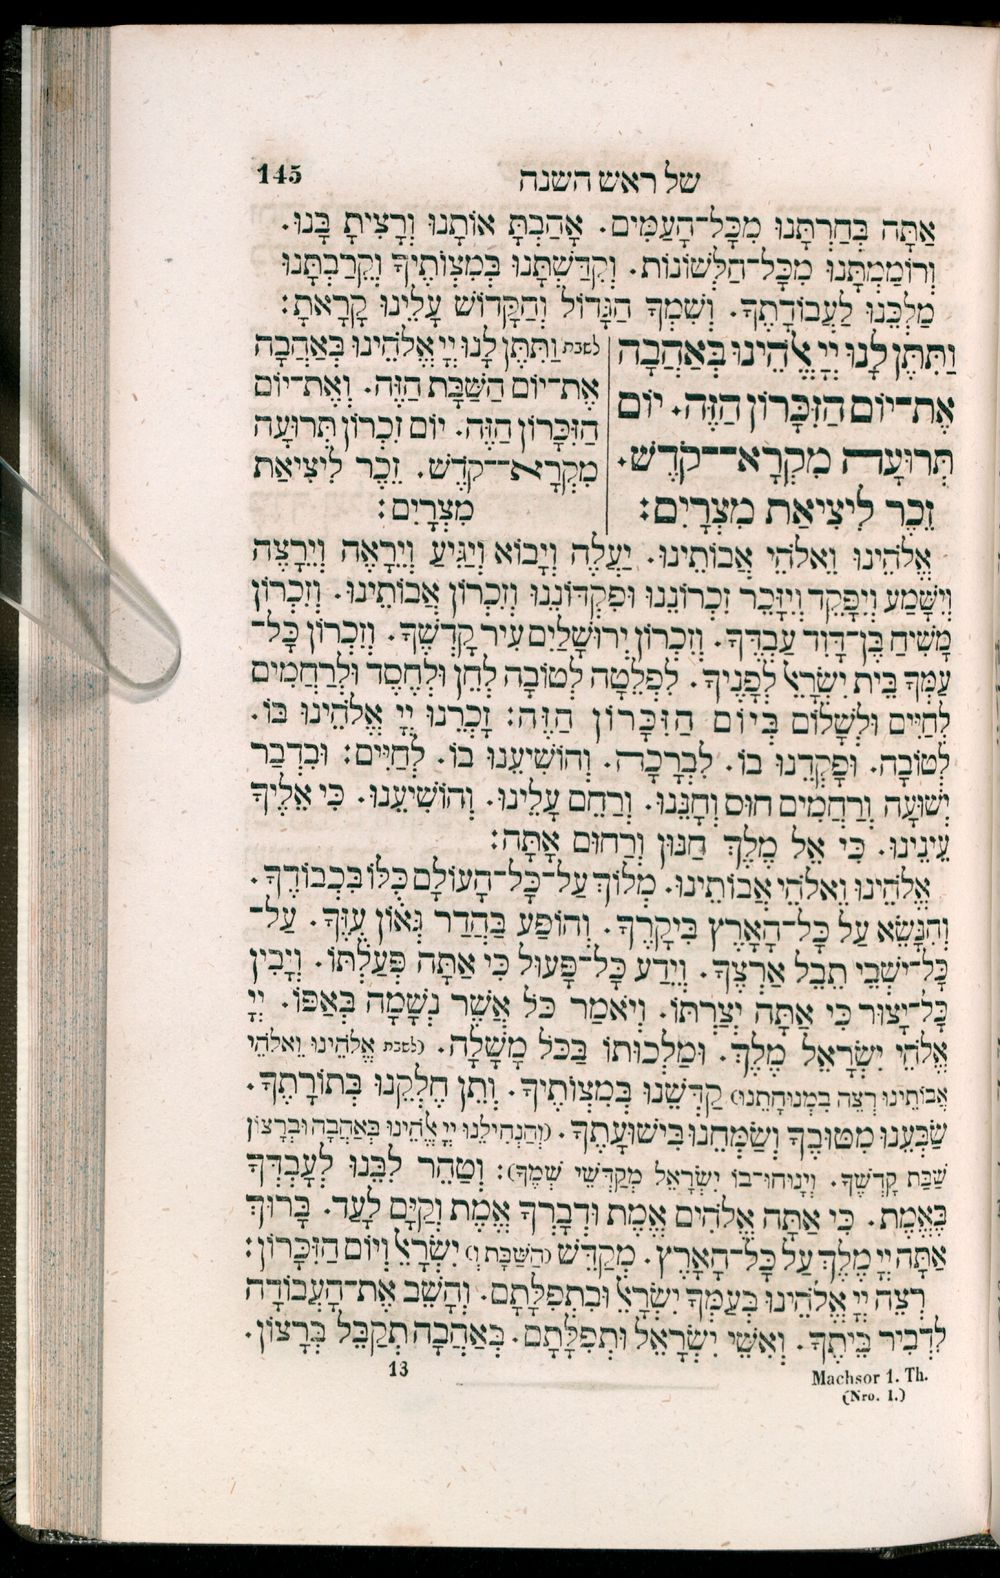 של ראש השנה 145
אַתָּה בְּחַרְתָּנוּ מִכָּל־הָעַמִּים. אָהַבְתָּ אוֹתָנוּ וְרָצִיתָ בָּנוּ.
וְרוֹמַמְתָּנוּ מִכָּל־הַלְּשׁוֹנוֹת. וְקִדַּשְׁתָּנוּ בְּמִצְוֹתֶיךָ וְקֵרַבְתָּנוּ
מַלְכֵּנוּ לַעֲבוֹדָתֶךָ. וְשִׁמְךָ הַגָּדוֹל וְהַקָּדוֹשׁ עָלֵינוּ קָרָאתָ:
וַתִּתֶּן לָנוּ יְיָ אֱלֹהֵינוּ בְּאַהֲבָה
אֶת־יוֹם הַזִּכָּרוֹן הַזֶּה. יוֹם
תְּרוּעָה מִקְרָא־קֹדֶשׁ.
זֵכֶר לִיצִיאַת מִצְרָיִם:
לשבת וַתִּתֶּן לָנוּ יְיָ אֱלֹהֵינוּ בְּאַהֲבָה
אֶת־יוֹם הַשַּׁבָּת הַזֶּה. וְאֶת־יוֹם
הַזִּכָּרוֹן הַזֶּה. יוֹם זִכְרוֹן תְּרוּעָה
מִקְרָא־קֹדֶשׁ. זֵכֶר לִיצִיאַת
מִצְרָיִם:
אֱלֹהֵינוּ וֵאלֹהֵי אֲבוֹתֵינוּ. יַעֲלֶה וְיָבוֹא וְיַגִּיעַ וְיֵרָאֶה וְיֵרָצֶה
וְיִשָּׁמַע וְיִפָּקֵד וְיִזָּכֵר זִכְרוֹנֵנוּ וּפִקְדוֹנֵנוּ וְזִכְרוֹן אֲבוֹתֵינוּ. וְזִכְרוֹן
מָשִׁיחַ בֶּן־דָּוִד עַבְדֶּךָ. וְזִכְרוֹן יְרוּשָׁלַיִם עִיר קָדְשֶׁךָ. וְזִכְרוֹן כָּל־
עַמְּךָ בֵּית יִשְׂרָאֵל לְפָנֶיךָ. לִפְלֵטָה לְטוֹבָה לְחֵן וּלְחֶסֶד וּלְרַחֲמִים
לְחַיִּים וּלְשָׁלוֹם בְּיוֹם הַזִּכָּרוֹן הַזֶּה: זָכְרֵנוּ יְיָ אֱלֹהֵינוּ בּוֹ.
לְטוֹבָה. וּפָקְדֵנוּ בוֹ. לִבְרָכָה. וְהוֹשִׁיעֵנוּ בוֹ. לְחַיִּים: וּבִדְבַר
יְשׁוּעָה וְרַחֲמִים חוּס וְחָנֵּנוּ. וְרַחֵם עָלֵינוּ. וְהוֹשִׁיעֵנוּ. כִּי אֵלֶיךָ
עֵינֵינוּ. כִּי אֵל מֶלֶךְ חַנּוּן וְרַחוּם אָתָּה:
אֱלֹהֵינוּ וֵאלֹהֵי אֲבוֹתֵינוּ. מְלוֹךְ עַל־כָּל־הָעוֹלָם כֻּלּוֹ בִּכְבוֹדֶךָ.
וְהִנָּשֵׂא עַל כָּל־הָאָרֶץ בִּיקָרֶךָ. וְהוֹפַע בַּהֲדַר גְּאוֹן עֻזֶּךָ. עַל־
כָּל־יֹשְׁבֵי תֵבֵל אַרְצֶךָ. וְיֵדַע כָּל־פָּעוּל כִּי אַתָּה פְעַלְתּוֹ. וְיָבִין
כָּל־יָצוּר כִּי אַתָּה יְצַרְתּוֹ. וְיֹאמַר כֹּל אֲשֶׁר נְשָׁמָה בְּאַפּוֹ. יְיָ
אֱלֹהֵי יִשְׂרָאֵל מֶלֶךְ. וּמַלְכוּתוֹ בַּכֹּל מָשָׁלָה. (לשבת אֱלֹהֵינוּ וֵאלֹהֵי
אֲבוֹתֵינוּ רְצֵה בִמְנוּחָתֵנוּ) קַדְּשֵׁנוּ בְּמִצְוֹתֶיךָ. וְתֵן חֶלְקֵנוּ בְּתוֹרָתֶךָ.
שַׂבְּעֵנוּ מִטּוּבֶךָ וְשַׂמְּחֵנוּ בִּישׁוּעָתֶךָ. (וְהַנְחִילֵנוּ יְיָ אֱלֹהֵינוּ בְּאַהֲבָה וּבְרָצוֹן
שַׁבַּת קָדְשֶׁךָ. וְיָנוּחוּ־בוֹ יִשְׂרָאֵל מְקַדְּשֵׁי שְׁמֶךָ): וְטַהֵר לִבֵּנוּ לְעָבְדְּךָ
בֶּאֱמֶת. כִּי אַתָּה אֱלֹהִים אֱמֶת וּדְבָרְךָ אֱמֶת וְקַיָּם לָעַד. בָּרוּךְ
אַתָּה יְיָ מֶלֶךְ עַל כָּל־הָאָרֶץ. מְקַדֵּשׁ (הַשַּׁבָּת וְ) יִשְׂרָאֵל וְיוֹם הַזִּכָּרוֹן:
רְצֵה יְיָ אֱלֹהֵינוּ בְּעַמְּךָ יִשְׂרָאֵל וּבִתְפִלָּתָם. וְהָשֵׁב אֶת־הָעֲבוֹדָה
לִדְבִיר בֵּיתֶךָ. וְאִשֵּׁי יִשְׂרָאֵל וּתְפִלָּתָם. בְּאַהֲבָה תְקַבֵּל בְּרָצוֹן.
13
Machsor 1. Th.
(Nro. 1.)